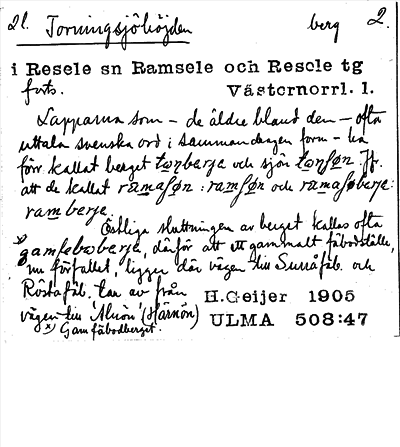 21. Torningsjöhöjden berg 2.
i Resele sn Ramsele och Resele tg
forts. Västernorrl. l.
Lapparna som – de äldre bland dem – ofta
uttala svenska ord i sammandragen form – ha
förr kallat berget tɷnberje och sjön tɷnsøn. Jfr.
att de kallat ramaſøn : ramſøn och ramaſøberje:
ramberje.
Östliga sluttningen av berget kallas ofta
x) gamfebɷberje, därför att ett gammalt fäbodställe,
nu förfallet, ligger där vägen till Sunnåfäb. och
Röstafäb. tar av från H.Geijer 1905
vägen till 'Aluön' (Härnön) ULMA 508:47
x) Gamfäbodberget.